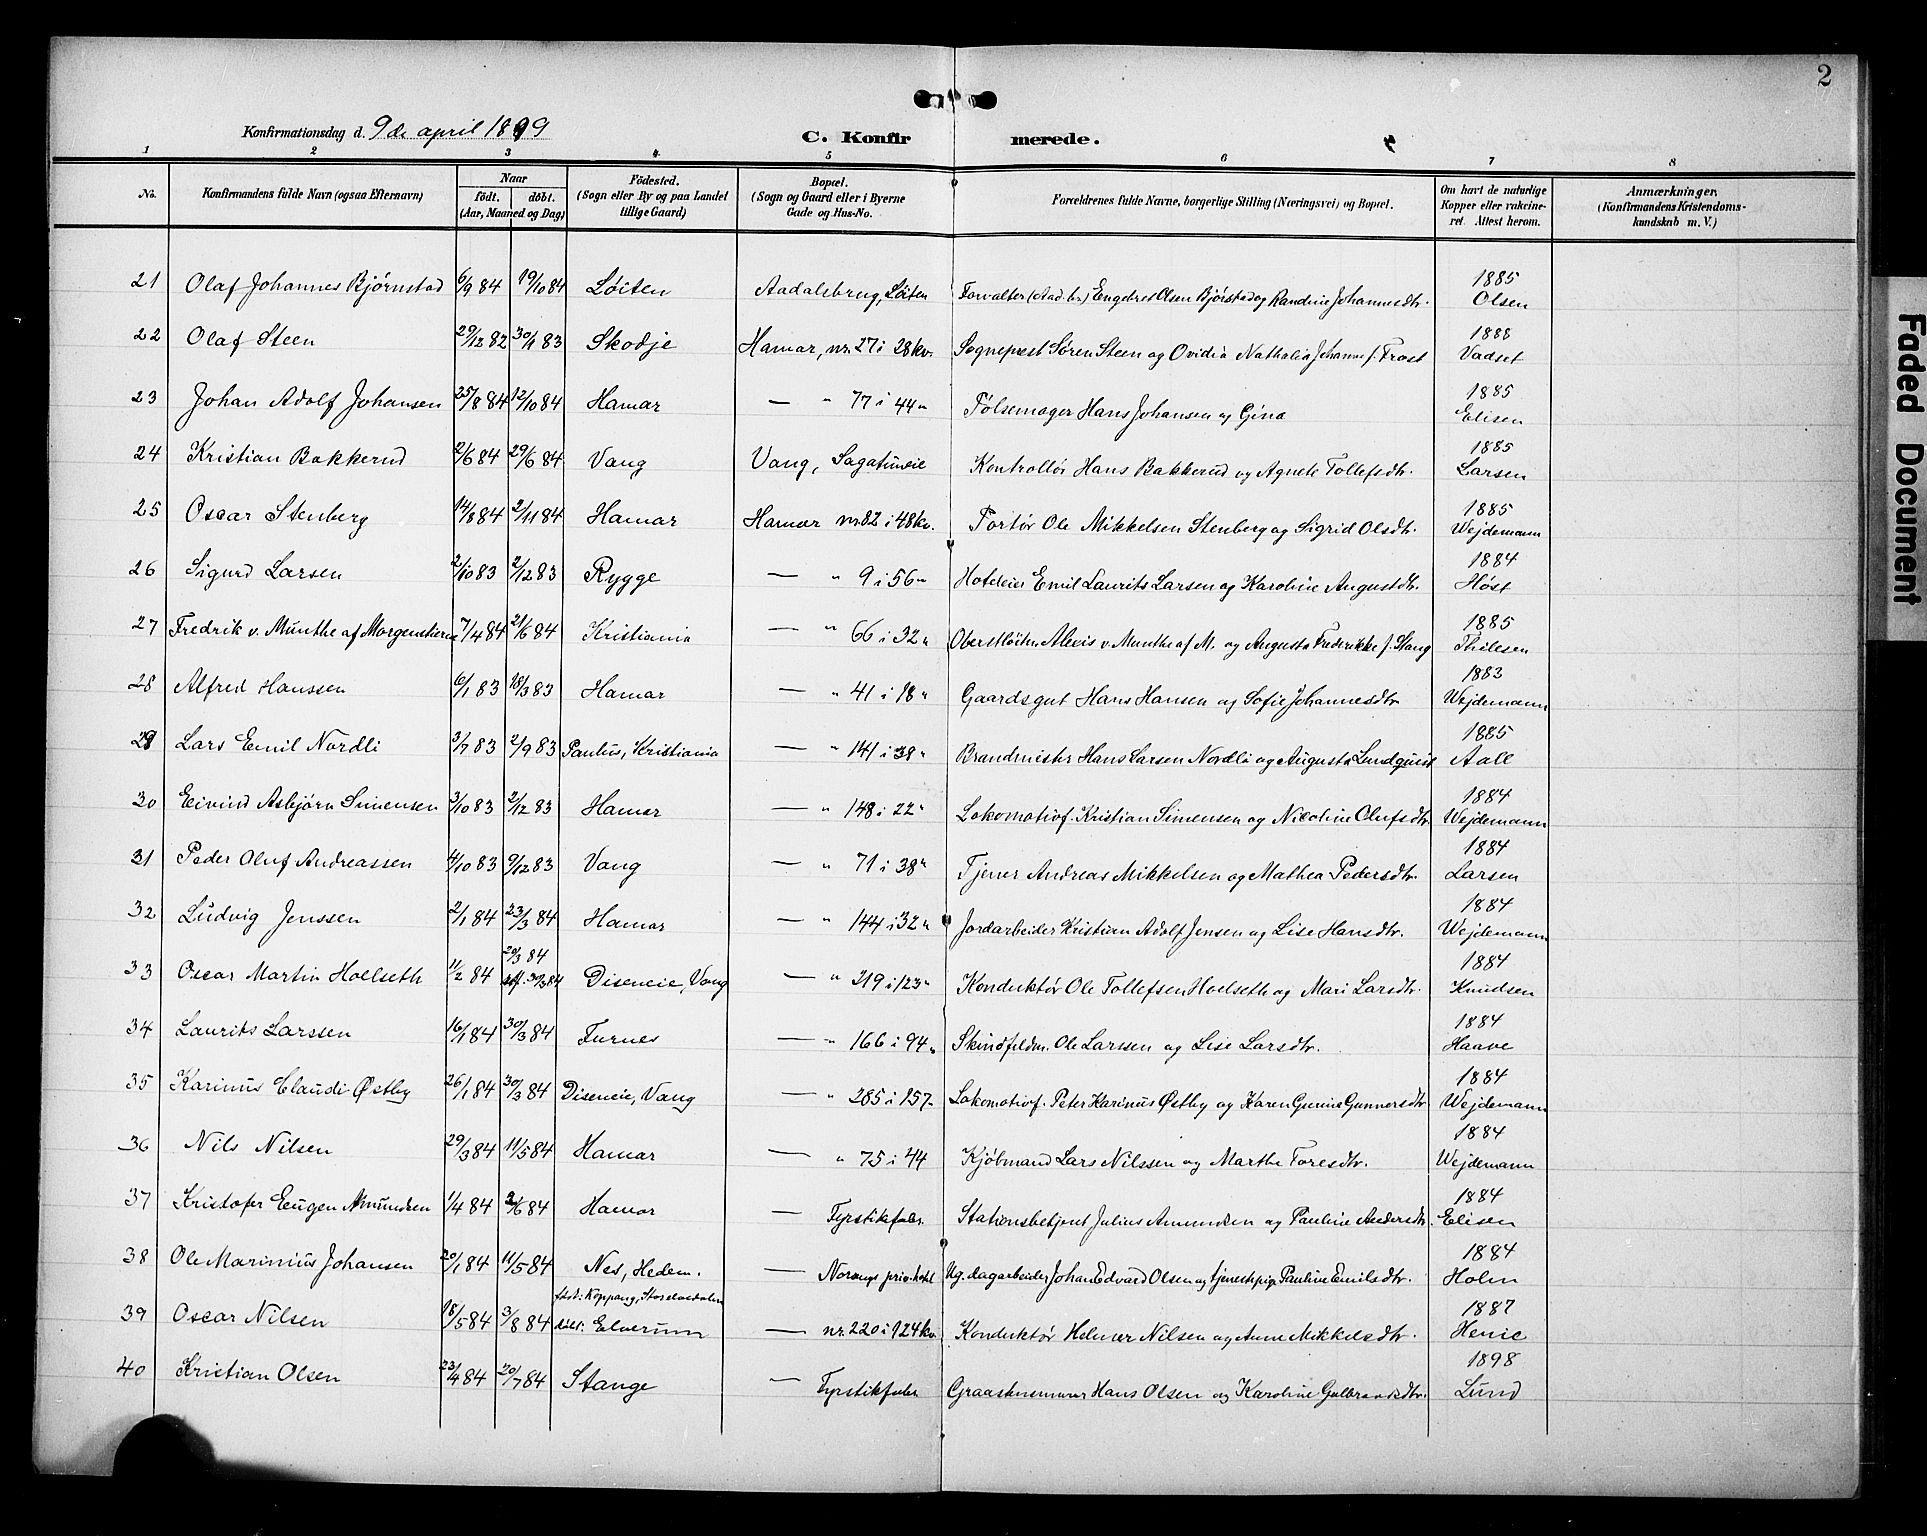 2
Konfirmationsdag d. 9de april 1899
C. Konfirmerede.
1 2 3 4 5 6 7 8
No. | Konfirmandens fulde Navn (ogsaa Efternavn) | Naar født. døbt. (Aar, Maaned og Dag) | Födested. (Sogn eller By og paa Landet tillige Gaard) | Bopæl. (Sogn og Gaard eller i Byerne Gade og Hus-No. | Forældrenes fulde Navne, borgerlige Stilling (Næringsvei) og Bopæl. | Om havt de naturlige Kopper eller vakcineret. Attest herom. | Anmærkninger. (Konfirmandens Kristendomskundskab m. V.)
21 Olaf Johannes Bjørnstad 6/9 84 19/10 84 Løiten Aadalsbrug, Løiten Forvalter (Aad.br.) Engebret Olsen Bjørstad og Randine Johannesdtr. 1885 Olsen
22 Olaf Steen 29/12 82 30/1 83 Skodje Hamar, nr. 27 i 28 kv. Sognepræst Søren Steen og Ovidia Nathalia Johanne f. Frost 1888 Vadset
23 Johan Adolf Johansen 25/8 84 12/10 84 Hamar — " 77 i 44 " Pølsemager Hans Johansen og Gina 1885 Elisen
24 Kristian Bakkerud 2/6 84 29/6 84 Vang Vang, Sagatuneie Kontrollør Hans Bakkerud og Agnete Tollefsdtr. 1885 Larsen
25 Oscar Stenberg 14/8 84 2/11 84 Hamar Hamar nr. 82 i 48 kv. Portør Ole Mikkelsen Stenberg og Sigrid Olsdtr. 1885 Wejdemann
26 Sigurd Larsen 2/10 83 2/12 83 Rygge — " 9 i 56 " Hoteleier Emil Laurits Larsen og Karoline Augustdtr. 1884 Høst
27 Fredrik v. Munthe af Morgenstierne 7/4 84 21/6 84 Kristiania — " 66 i 32 " Oberstløitn. Alexis v. Munthe af M. og Augusta Frederikke f. Stang 1885 Thilesen
28 Alfred Hanssen 6/1 83 18/3 83 Hamar — " 41 i 18 " Gaardsgut Hans Hansen og Sofie Johannesdtr 1883 Wejdemann
29 Lars Emil Nordli 3/7 83 2/9 83 Paulus, Kristiania — " 141 i 38 " Brandmester Hans Larsen Nordli og Augusta Lundquist 1885 Aall
30 Eivind Asbjørn Simensen 3/10 83 2/12 83 Hamar — " 148 i 22 " Lokomotivf. Kristian Simensen og Nicoline Olufsdtr 1884 Wejdemann
31 Peder Oluf Andreassen 4/10 83 9/12 83 Vang — " 71 i 38 " Tjener Andreas Mikkelsen og Mathea Pedersdtr. 1884 Larsen
32 Ludvig Jenssen 2/1 84 23/3 84 Hamar — " 144 i 32 " Jordarbeider Kristian Adolf Jensen og Lise Hansdtr. 1884 Wejdemann
33 Oscar Martin Hoelseth 11/2 84 29/3 84 stf. 30/3 84 Diseneie, Vang — " 219 i 123 " Konduktør Ole Tollefsen Hoelseth og Mari Larsdtr. 1884 Knudsen
34 Laurits Larssen 16/1 84 30/3 84 Furnes — " 166 i 94 " Skindfeldm. Ole Larssen og Lise Larsdtr. 1884 Haave
35 Karinus Claudi Østby 26/1 84 30/3 84 Diseneie, Vang — " 285 i 157 " Lokomotivf. Peter Karinus Østby og Karen Gurine Gunnersdtr 1884 Wejdemann
36 Nils Nilsen 29/3 84 11/5 84 Hamar — " 75 i 44 Kjøbmand Lars Nilssen og Marthe Toresdtr. 1884 Wejdemann
37 Kristofer Eugen Amundsen 1/4 84 2/6 84 Hamar — Fyrstikfabr. Stationsbetjent Julius Amundsen og Pauline Andersdtr. 1884 Elisen
38 Ole Marinius Johansen 20/1 84 11/5 84 Nes, Hedem. — Norängs priv. hotel Ug. dagarbeider Johan Edvard Olsen og tjenestpige Pauline Emilsdtr. 1884 Holm
39 Oscar Nilsen 18/5 84 3/8 84 født: Koppang, Storelvedalen døbt: Elverum — nr. 220 i 124 kv. Konduktør Helmer Nilsen og Anne Mikkelsdtr. 1887 Henie
40 Kristian Olsen 23/4 84 20/7 84 Stange — Fyrstikfabr. Graastensmurer Hans Olsen og Karoline Gulbrandsdtr. 1898 Lund
Faded Document